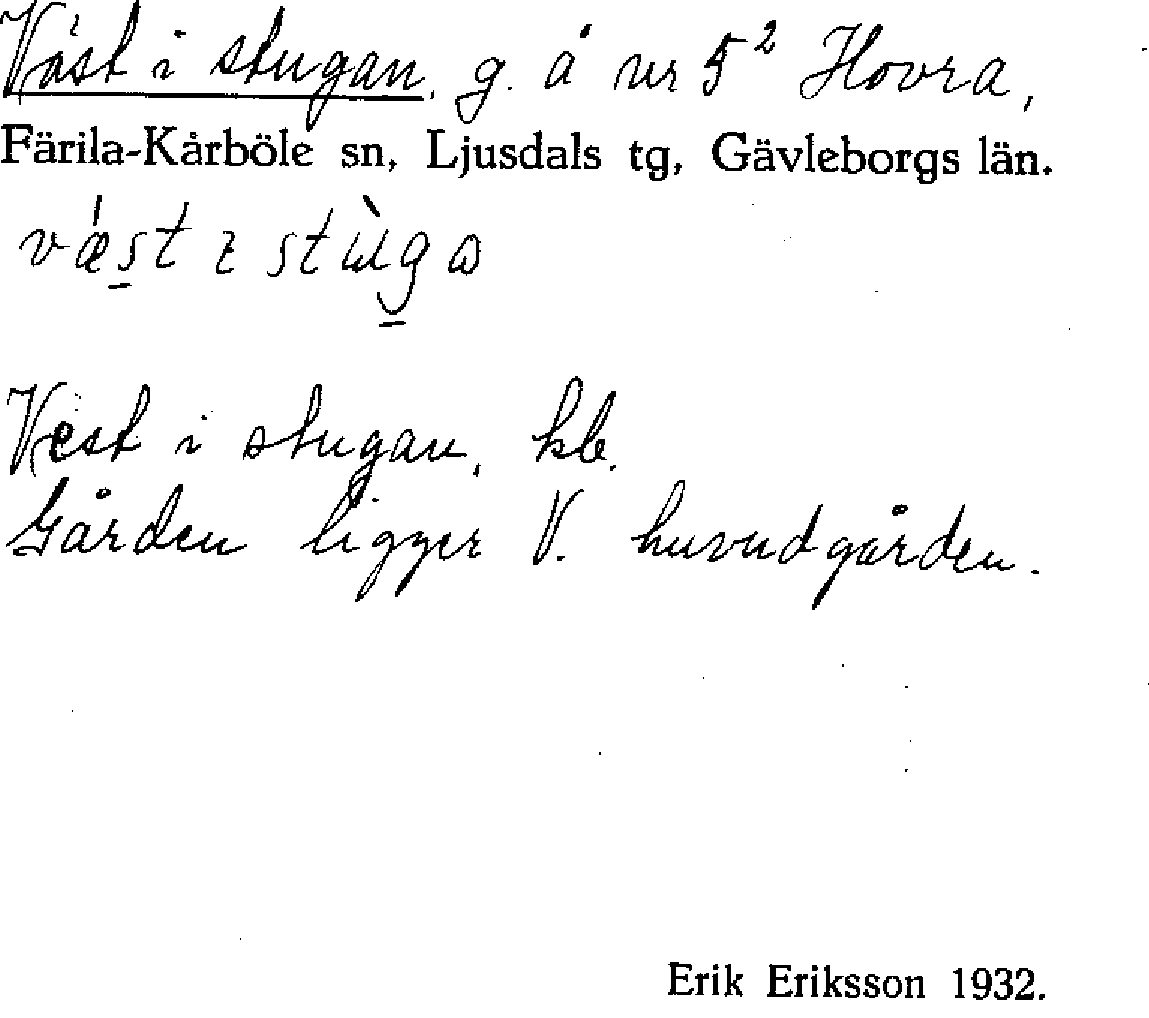 Väst i stugan, g. å nr 5² Hovra,
Färila-Kårböle sn, Ljusdals tg, Gävleborgs län.
væ̀st ɪ stùgɷ
Vest i stugan, kb.
Gården ligger V. huvudgården.
Erik Eriksson 1932.